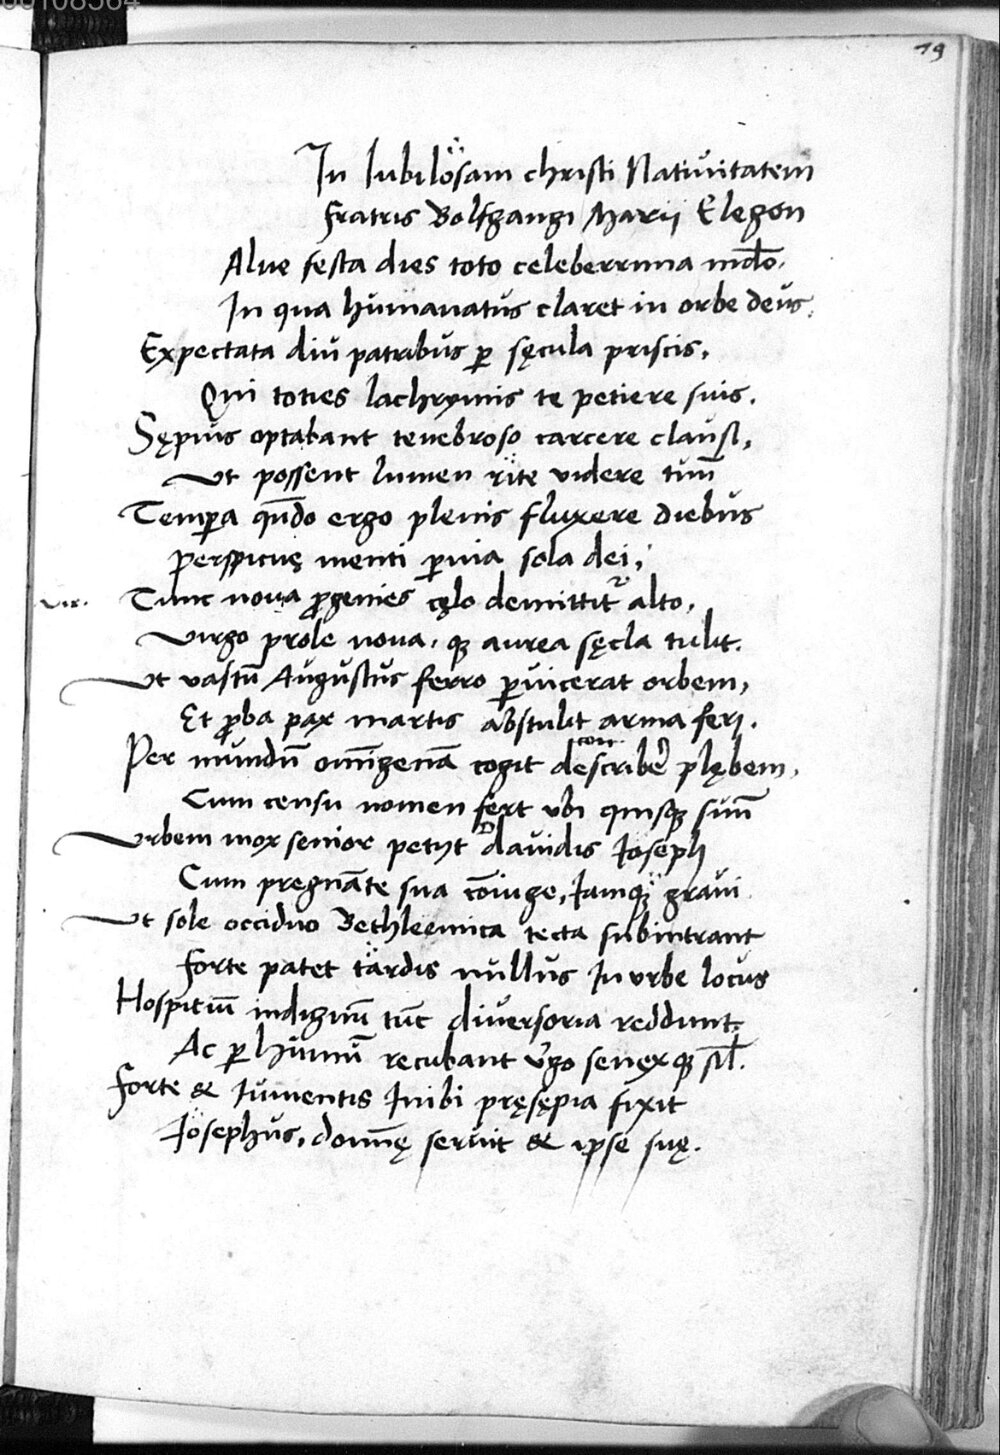 79
In Iubilösam christi Natiuitatem
fratris Bolfgangi Marij Elegon
Alue festa dies toto celeberrima mūdo.
In qua humanatus claret in orbe deus.
Expectata diu patribus ꝑ sęcula priscis,
Qui toties lachrymis te petiere suis.
Sępius optabant tenebroso carcere clausi,
Ut possent lumen rite videre tuū
Temꝑa qn̄do ergo plenis fluxere diebus
perspicuę menti ꝑuia sola dei,
Vir.
Tunc noua ꝓgenies cęlo demittitᷣ alto,
Virgo prole noua, qꝫ aurea sęcla tulit.
Ut vastū Augustus ferro ꝑuicerat orbem,
Et ꝓba pax martis abstulit arma feri.
con
Per mundū omīgenā cogit describeꝛ plębem,
Cum censu nomen fert vbi quisqꝫ suū
Urbem mox senior petijt davidis Ioseph
Cum pregnāte sua cōiuge, Iamqꝫ graui
Ut sole occiduo Bethleemica tecta subintrant
forte patet tardis nullus In vrbe locus
Hospitiū indignū tūc diuersoria reddunt.
Ac ꝑ humū recubant v̓go senexqꝫ sił.
forte & Iumentis Inibi pręsępia fixit
Iosephus, domīę seruit & ipse suę.